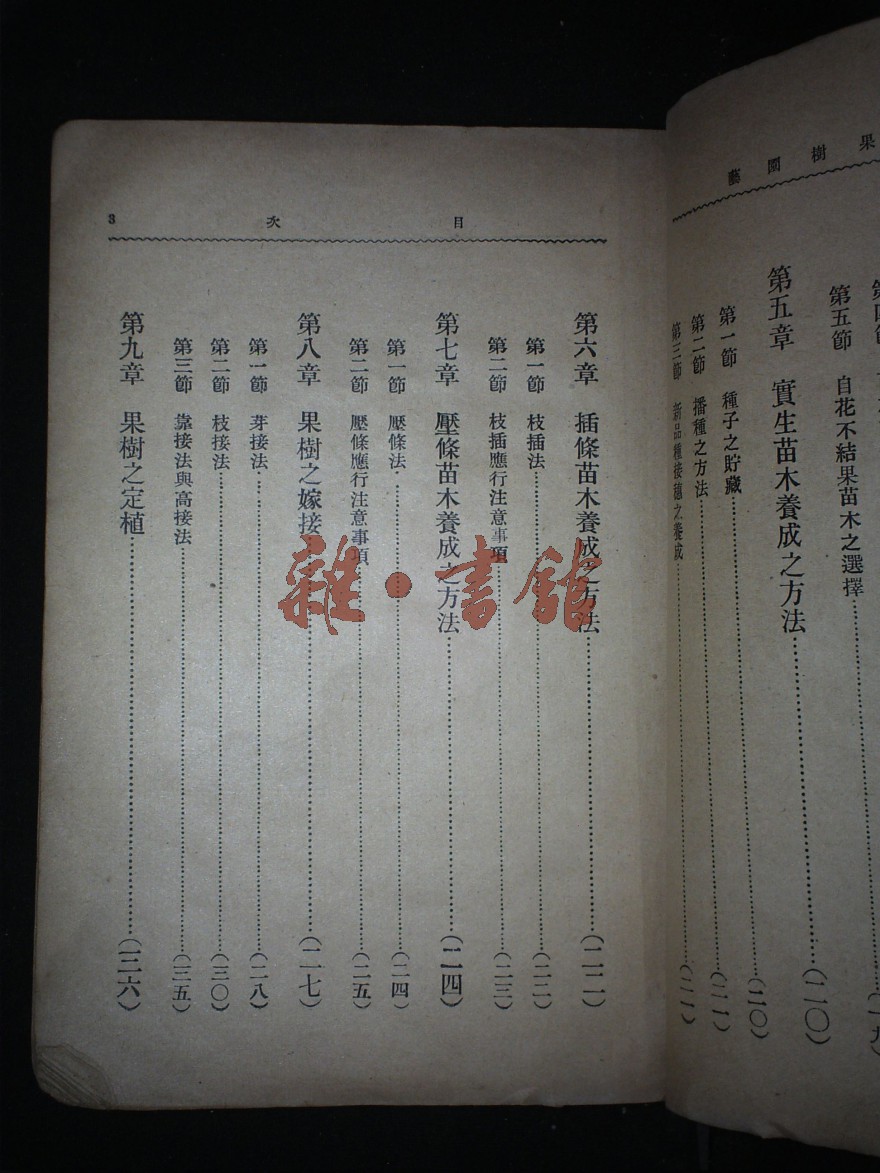 果樹園藝
第五節 自花不結果苗木之選擇……(一九
第五章 實生苗木養成之方法……(二〇)
第一節 種子之貯藏……(二〇)
第二節 播種之方法……(二一)
第三節 新品種接穗之養成……(二一)
目次 3
第六章 插條苗木養成之方法……(二二)
第一節 枝插法……(二二)
第二節 枝插應行注意事項……(二三)
第七章 壓條苗木養成之方法……(二四)
第一節 壓條法……(二四)
第二節 壓條應行注意事項……(二五)
第八章 果樹之嫁接……(二七)
第一節 芽接法……(二八)
第二節 枝接法……(三〇)
第三節 靠接法與高接法……(三五)
第九章 果樹之定植……(三六)
雜·書館